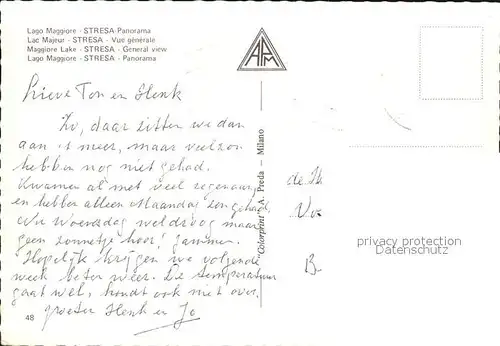 Lago Maggiore - STRESA-Panorama
Lac Majeur - STRESA - Vue générale
Maggiore Lake - STRESA - General view
Lago Maggiore - STRESA - Panorama
APM
Lieve Ton en Henk
Zo, daar zitten we dan
aan 't meer, maar veel zon
hebben nog niet gehad.
Kwamen al met veel regen aan,
en hebben alleen Maandag zon gehad,
Nu Woensdag wel droog maar
geen zonnetje hoor! Jammer.
Hopelijk krijgen we volgende
week beter weer. De temperatuur
gaat wel, houdt ook niet over.
groeten Henk en Jo
48
"Colorprint" - A. Preda - Milano
de H
B
privacy protection
Datenschutz